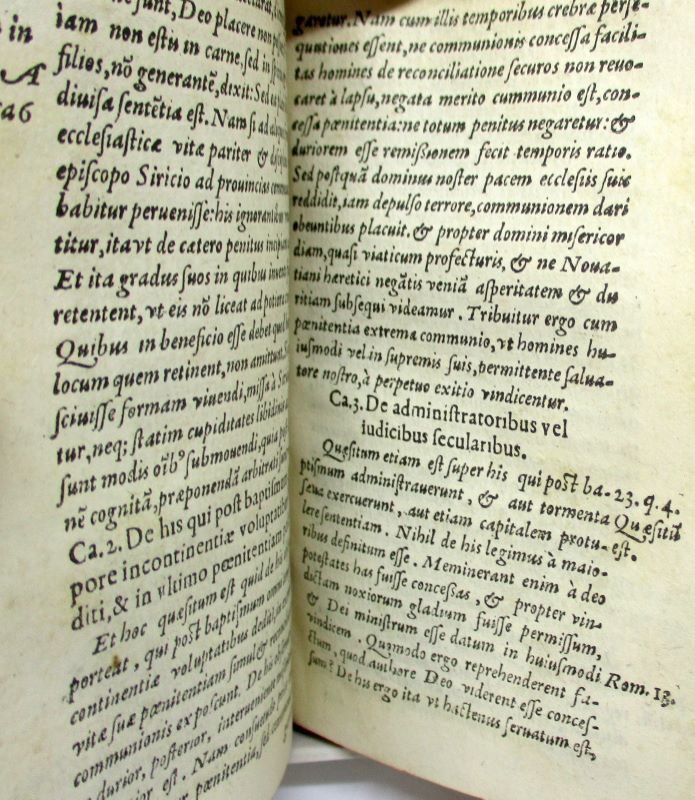 in
A
ca6
sunt, Deo placere non
iam non estis in carne, sed in
filios, nō generantē, dixit: Sed
diuisa sentētia est. Nam si ad
ecclesiasticæ vitæ pariter &
episcopo Siricio ad prouincias
babitur peruenisse: his ignorantibus
titur, ita vt de cætero penitus
Et ita gradus suos in quibus
retentent, vt eis nō liceat ad
Quibus in beneficio esse debet quod
locum quem retinent, non amittunt.
sciuisse formam viuendi, missā à
tur, neq; statim cupiditates libidinis
sunt modis oībꝰ submouendi, quia
nē cognitā, præponendā arbitrati sunt
Ca.2. De his qui post baptismum
pore incontinentiæ voluptatibus
diti, & in vltimo pœnitentiam
Et hoc quæsitum est quid de his
porteat, qui post baptismum omni
continentiæ voluptatibus dediti, in
vitæ suæ pœnitentiam simul &
communionis exposcunt. De his
durior, posterior, interueniente
rior est. Nam consuetudo
pœnitentia, sed
garetur. Nam cum illis temporibus crebræ perse-
quutiones essent, ne communionis concessa facili-
tas homines de reconciliatione securos non reuo-
caret à lapsu, negata merito cummunio est, con-
cessa pœnitentia: ne totum penitus negaretur: &
duriorem esse remißionem fecit temporis ratio.
Sed postquā dominus noster pacem ecclesiis suis
reddidit, iam depulso terrore, communionem dari
obeuntibus placuit. & propter domini misericor
diam, quasi viaticum profecturis, & ne Noua-
tiani hæretici negātis veniā asperitatem & du
ritiam subsequi videamur. Tribuitur ergo cum
pœnitentia extrema communio, vt homines hu-
iusmodi vel in supremis suis, permittente salua-
tore nostro, à perpetuo exitio vindicentur.
Ca.3. De administratoribus vel
iudicibus secularibus.
Quæsitum etiam est super his qui post ba- 23. q. 4.
ptismum administrauerunt, & aut tormenta Quæsitū
seua exercuerunt, aut etiam capitalem protu- est.
lere sententiam. Nihil de his legimus à maio-
ribus definitum esse. Meminerant enim à deo
potestates has fuisse concessas, & propter vin-
dictam noxiorum gladium fuisse permissum,
& Dei ministrum esse datum in huiusmodi Rom. 13.
vindicem. Quomodo ergo reprehenderent fa-
ctum, quod authore Deo viderent esse conces-
sum? De his ergo ita vt hactenus seruatum est,